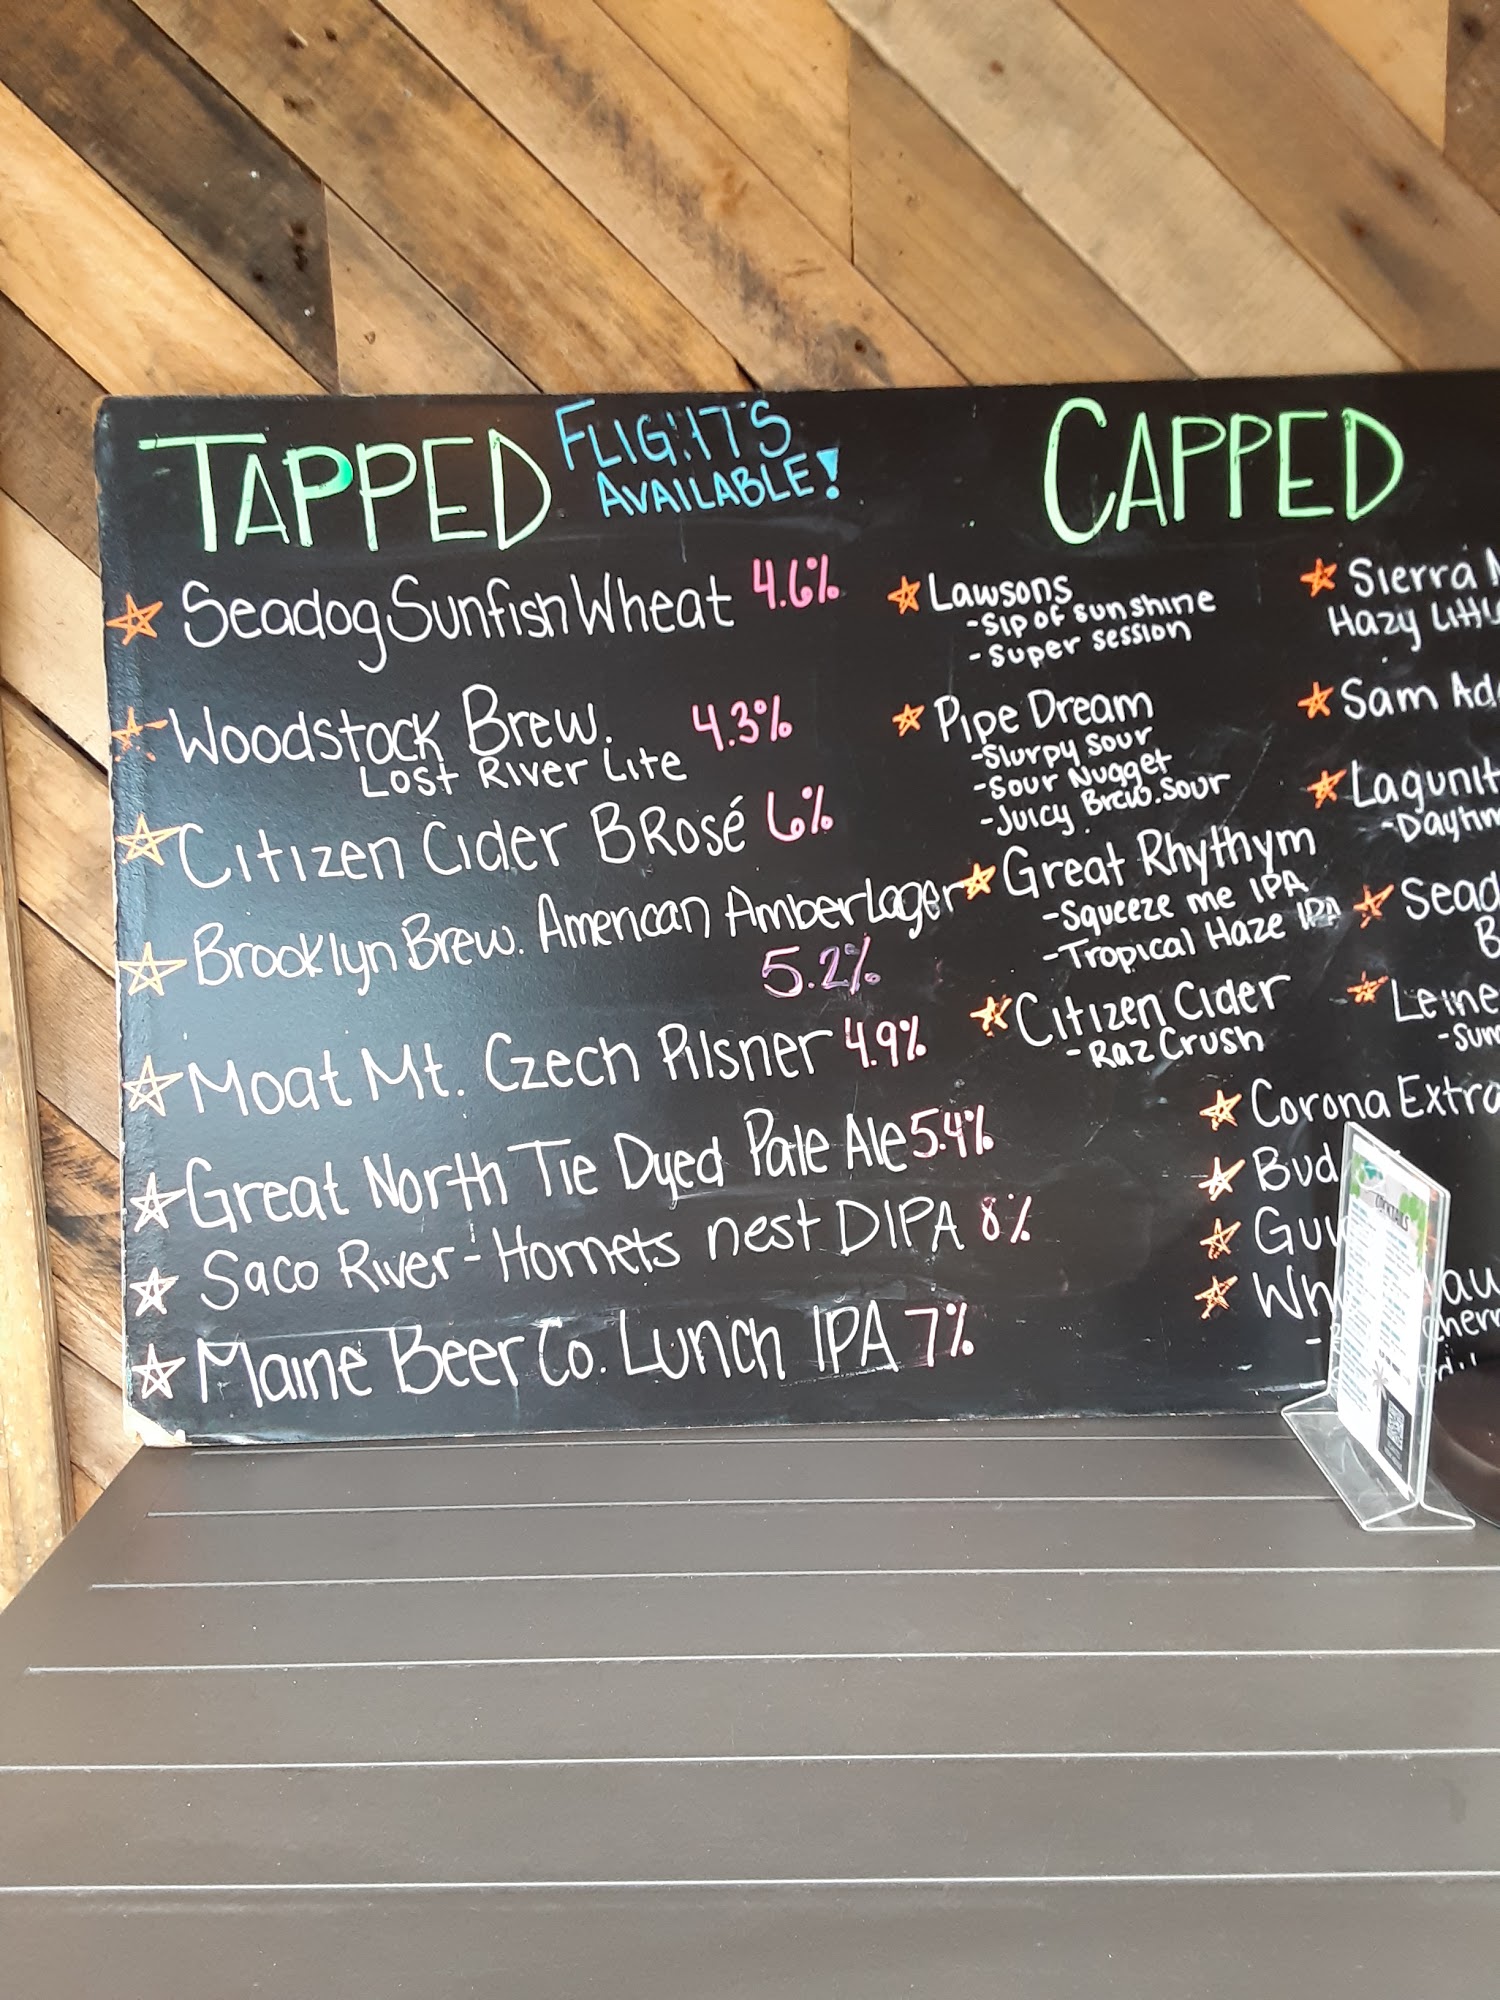 TAPPED
FLIGHTS
AVAILABLE!
Seadog Sunfish Wheat 4.6%
Woodstock Brew. 4.3%
Lost River Lite
Citizen Cider BRosé 6%
Brooklyn Brew. American Amber Lager
5.2%
Moat Mt. Czech Pilsner 4.9%
Great North Tie Dyed Pale Ale 5.4%
Saco River - Hornets nest DIPA 8%
Maine Beer Co. Lunch IPA 7%
CAPPED
Lawsons
- Sip of sunshine
- Super session
Pipe Dream
- Slurpy Sour
- Sour Nugget
- Juicy Brew. Sour
Great Rhythym
- Squeeze me IPA
- Tropical Haze IPA
Citizen Cider
- Raz Crush
Sierra
Hazy
Sam
Corona Extra
Bud
COCKTAILS